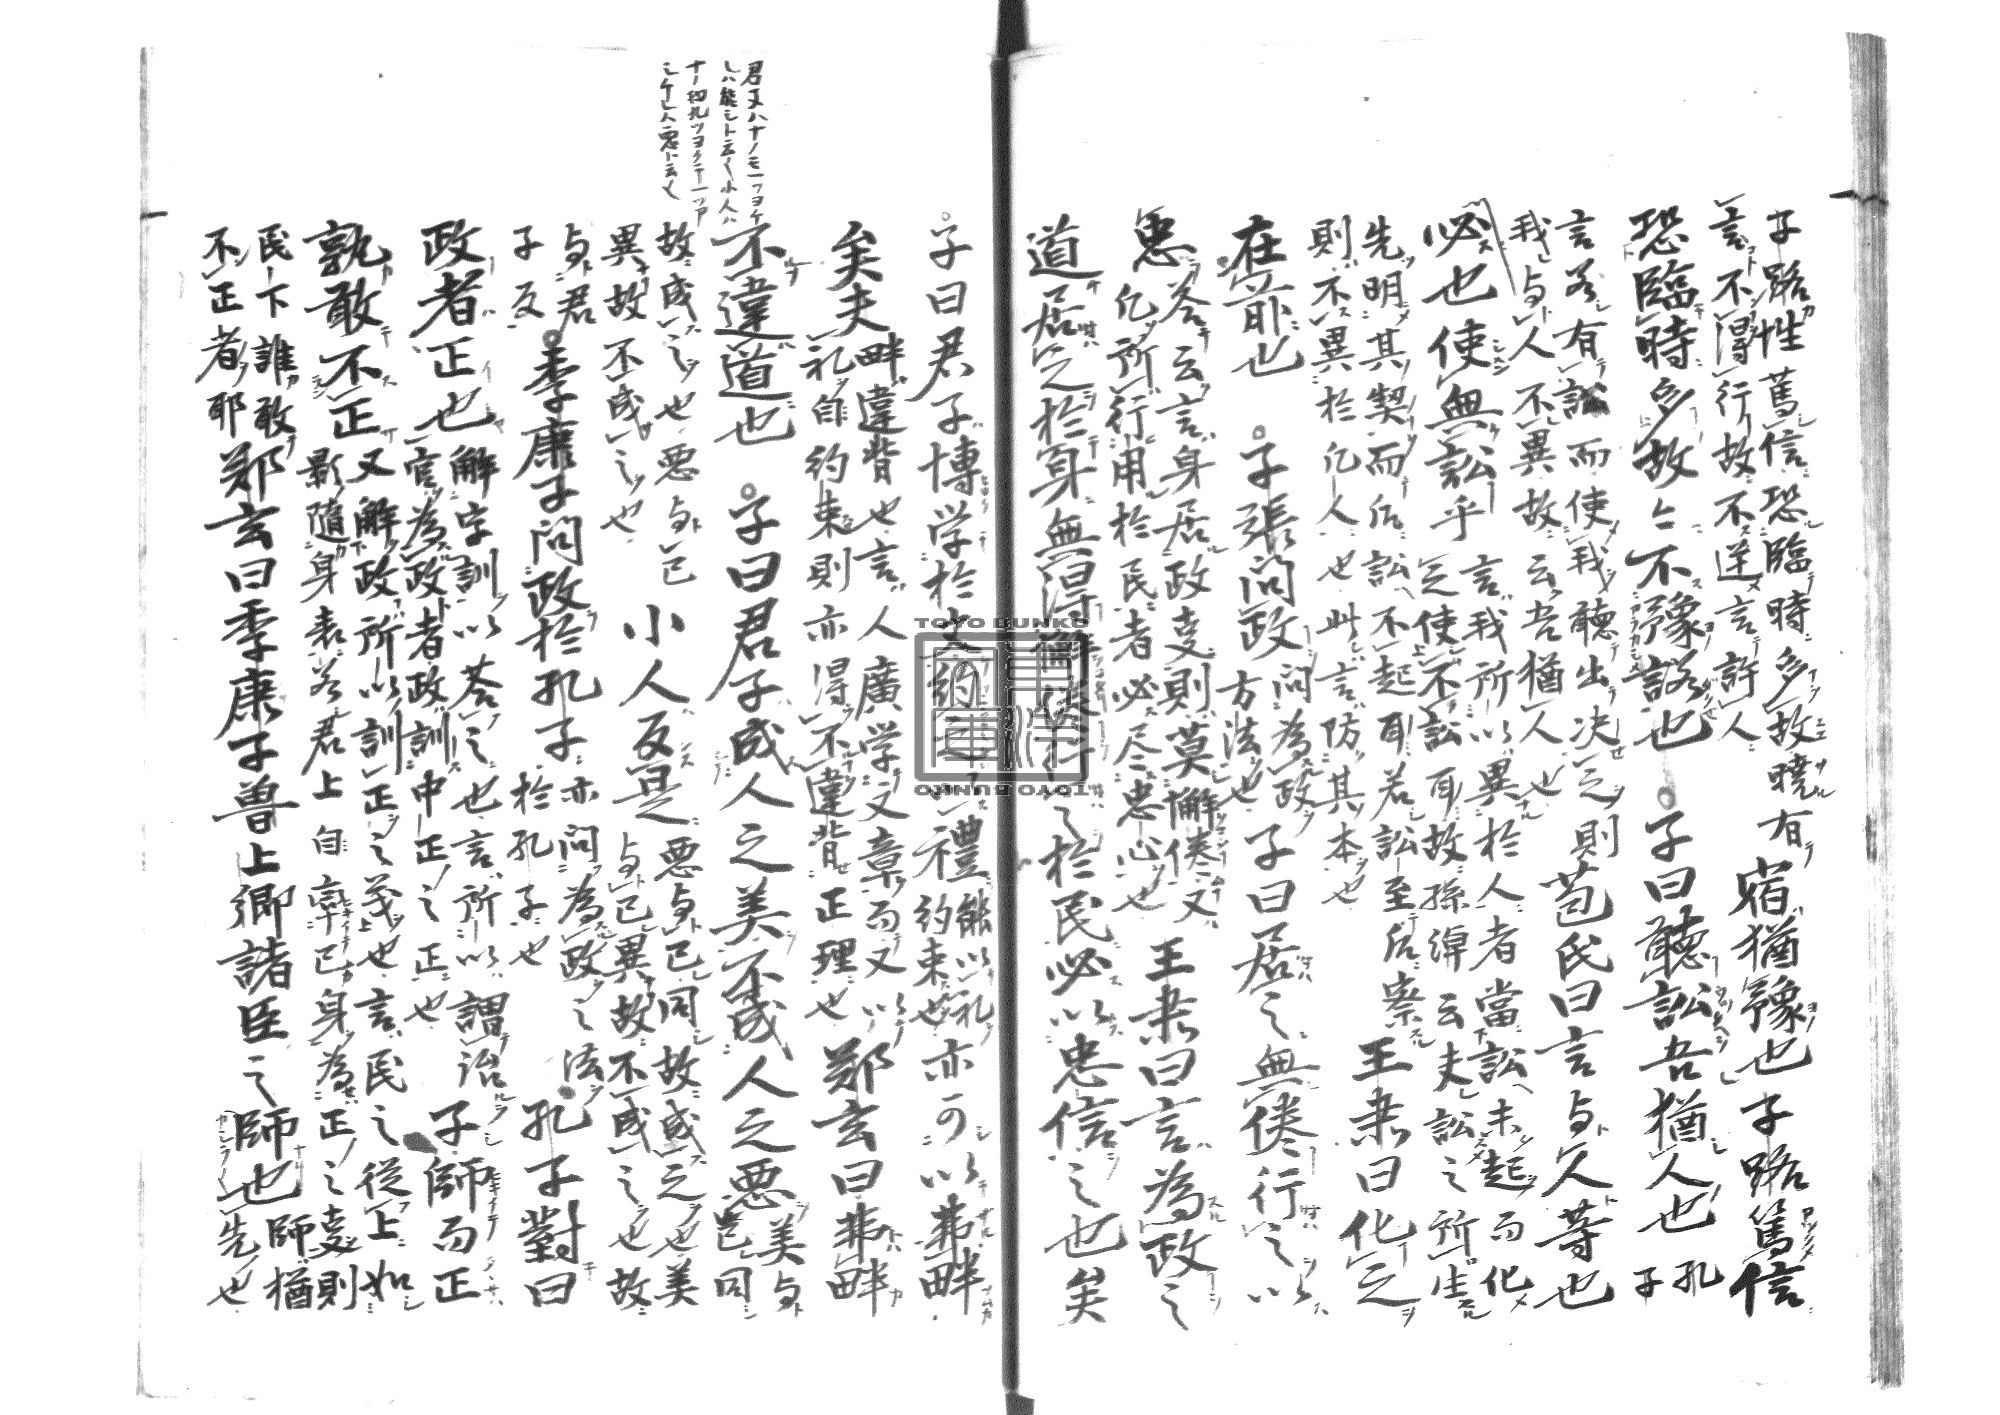 子路性篤信恐臨時多故曉有
言不得行故不逆言許人
宿猶豫也子路篤信
恐臨時多故〻不豫諾也 ○子曰聽訟吾猶人也 孔子
言若有訟而使我聽出决之則
我与人不異故云吾猶人也
苞氏曰言与人等也
必也使無訟乎
言我所以異於人者當訟未起而化
之使不訟耳故孫綽云夫訟之所生
先明其契而后訟不起耳若訟至后察
則不異於凡人也此言防其本也
王粛曰化之
在前也 ○子張問政
問為政
方法也
子曰居之無倦行之以
忠
荅云言身居政叓則莫懈倦又
凡所行用於民者必尽忠心也
王粛曰言為政之
道居之於身無得懈倦行之於民必以忠信之也矣
○子曰君子博学於文約之以禮
能以礼
約束也
亦可以弗畔
矣夫
畔違背也言人廣学文章而又以
礼自約束則亦得不違背正理也
鄭玄曰弗畔
君子ハ十ノモ一ツヨケ
レハ能シト云く小人ハ
十ノ物九ツヨクテ一ツア
シケレハ悪ト云く
不違道也 ○子曰君子成人之美不成人之悪
美与
已同
故成之也悪与已
異故不成之也
小人反是
悪与己同故成之也美
与己異故不成之也故
与君
子反
○季康子問政於孔子
亦問為政之法
於孔子也
孔子對曰
政者正也
解字訓以荅之也言所以謂治
官為政者政訓中正之正也
子師而正
孰敢不正
又解政所以訓正之義也言民之從上如
影隨身表若君上自率己身為正之叓則
民下誰敢
不正者耶
鄭玄曰季康子魯上卿諸臣之師也
師猶
先也
TOYO BUNKO